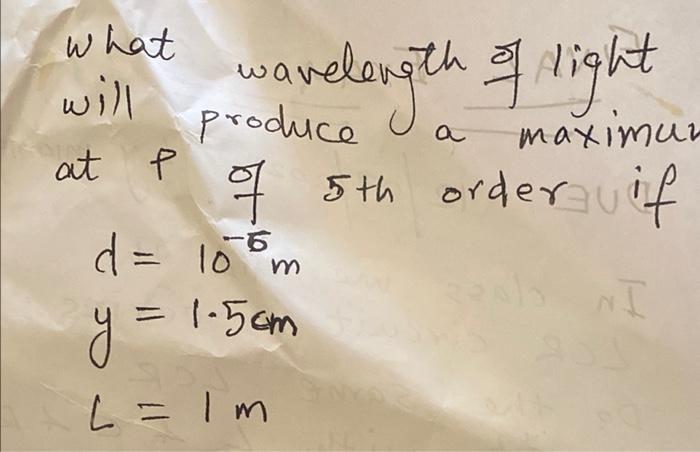 what wavelength of light
will produce a maximum
at P of 5th order if
d = 10⁻⁵ m
y = 1.5cm
L = 1 m